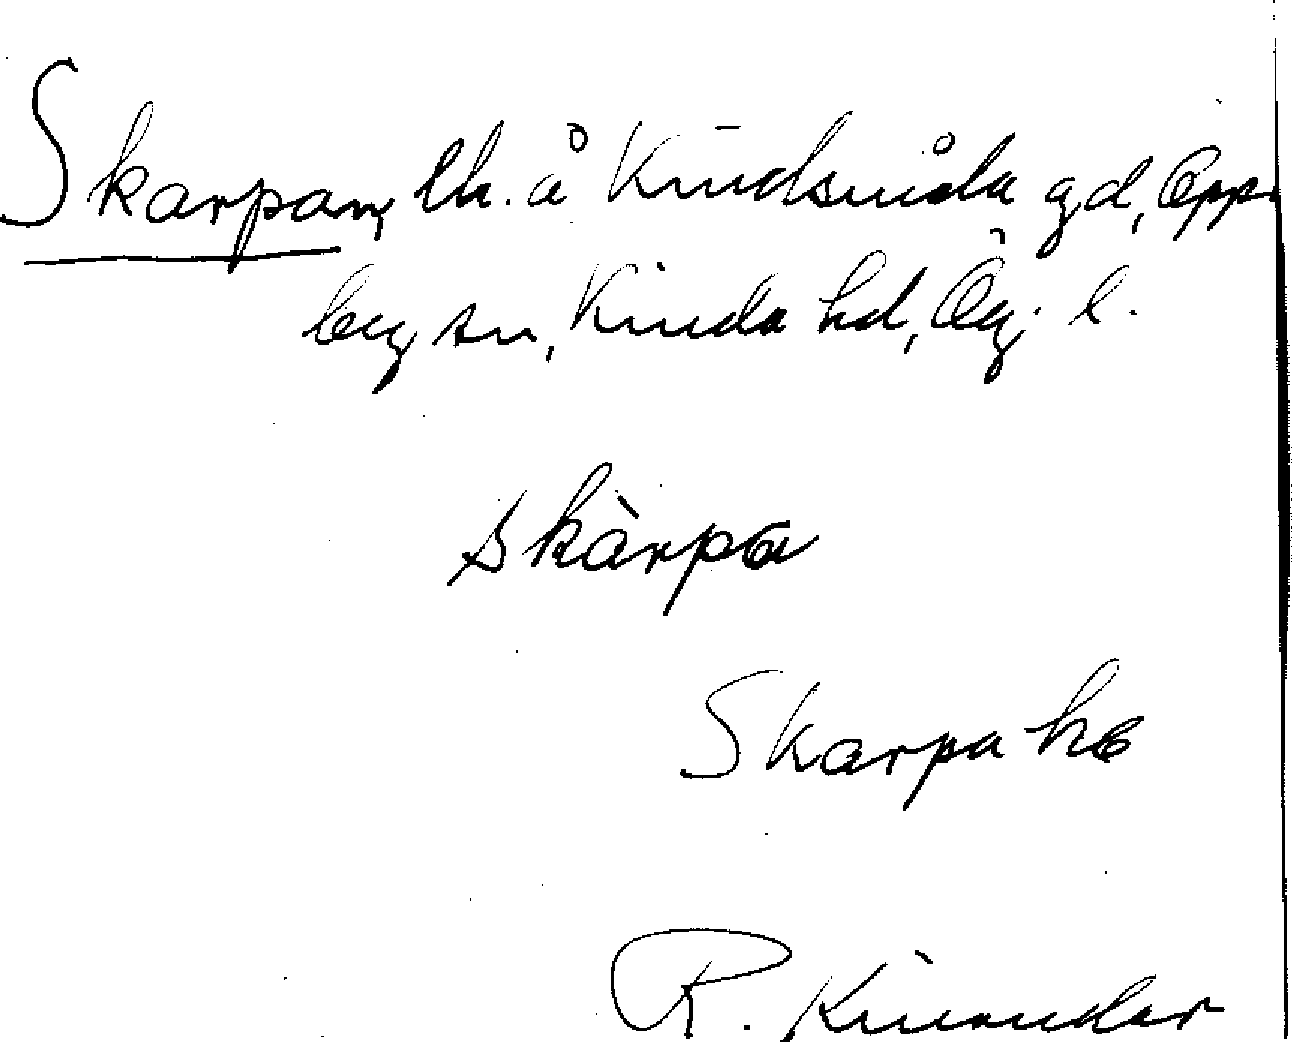 Skarpan, lh. å Kindsmåla gd, Opp
by sn, Kinda hd, Ög. l.
skàrpa
Skarpa ka
R. Kinander